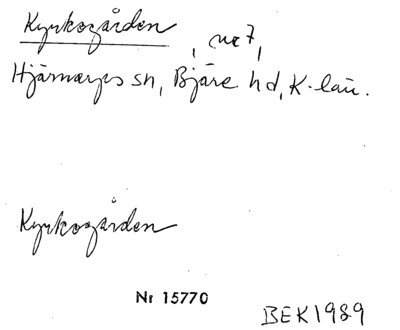 Kyrkogården, nr 7,
Hjärnarps sn, Bjäre hd, K-län.
Kyrkogården
Nr 15770
BEK 1989